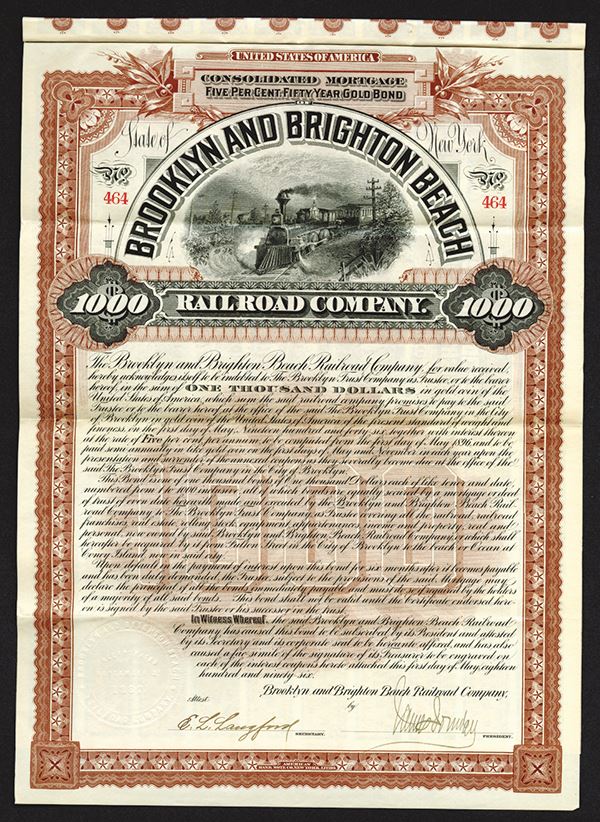 UNITED STATES OF AMERICA
CONSOLIDATED MORTGAGE
FIVE PER CENT. FIFTY YEAR GOLD BOND
OF
State of New York
BROOKLYN AND BRIGHTON BEACH
No 464
No 464
1000 RAILROAD COMPANY. 1000
The Brooklyn and Brighton Beach Railroad Company, for value received
hereby acknowledges itself to be indebted to The Brooklyn Trust Company as Trustee, or to the bearer
hereof, in the sum of ONE THOUSAND DOLLARS in gold coin of the
United States of America, which sum the said railroad company promises to pay to the said
Trustee or to the bearer hereof at the office of the said The Brooklyn Trust Company in the City
of Brooklyn in gold coin of the United States of America of the present standard of weight and
fineness on the first day of May, Nineteen hundred and forty six, together with interest thereon
at the rate of Five per cent per annum to be computed from the first day of May 1896, and to be
paid semi annually in like gold coin on the first days of May and November in each year upon the
presentation and surrender of the annexed coupons as they severally become due at the office of the
said The Brooklyn Trust Company in the City of Brooklyn.
This Bond is one of one thousand bonds of One thousand Dollars each of like tenor and date,
numbered from 1 to 1000 inclusive, all of which bonds are equally secured by a mortgage or deed
of trust of even date herewith made and executed by the Brooklyn and Brighton Beach Rail-
road Company to The Brooklyn Trust Company, as Trustee, covering all the railroad railroad
franchises, real estate, rolling stock, equipment, appurtenances, income and profits, real and
personal, now owned by said Brooklyn and Brighton Beach Railroad Company, or which shall
hereafter be acquired by it, from Fulton Street in the City of Brooklyn to the beach or Ocean at
Coney Island now in said city.
Upon default in the payment of interest upon this bond for six months after it becomes payable
and has been duly demanded, the Trustee, subject to the provisions of the said Mortgage may
declare the principal of all the bonds immediately payable, and must do so if required by the holders
of a majority of all said bonds. This bond shall not be valid until the Certificate endorsed here-
on is signed by the said Trustee or his successor in the trust.
In Witness Whereof, the said Brooklyn and Brighton Beach Railroad
Company has caused this bond to be subscribed by its President and attested
by its Secretary and its corporate seal to be hereunto affixed, and has also
caused a fac simile of the signature of its Treasurer to be engraved on
each of the interest coupons hereto attached this first day of May, eighteen
hundred and ninety-six.
Brooklyn and Brighton Beach Railroad Company,
Attest. by
E. L. Langford SECRETARY. James Jourdan PRESIDENT.
AMERICAN
BANK NOTE CO. NEW YORK.